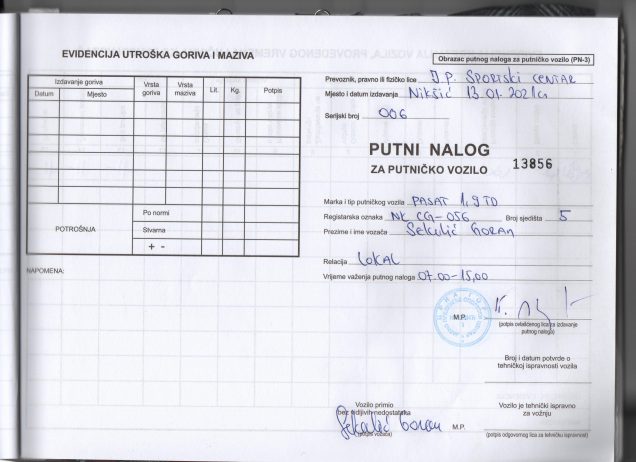 EVIDENCIJA UTROŠKA GORIVA I MAZIVA
Izdavanje goriva
Datum
Mjesto
Vrsta goriva
Vrsta maziva
Lit.
Kg.
Potpis
POTROŠNJA
Po normi
Stvarna
+ -
NAPOMENA:
Obrazac putnog naloga za putničko vozilo (PN-3)
Prevoznik, pravno ili fizičko lice J.P. SPORTSKI CENTAR
Mjesto i datum izdavanja Nikšić 13.01.2021.G
Serijski broj 006
PUTNI NALOG
ZA PUTNIČKO VOZILO 13856
Marka i tip putničkog vozila PASAT 1,9 TD
Registarska oznaka NK CG-056 Broj sjedišta 5
Prezime i ime vozača Sekulić Goran
Relacija LOKAL
Vrijeme važenja putnog naloga 07.00-15,00
M.P.
(potpis ovlašćenog lica za izdavanje
putnog naloga)
Broj i datum potvrde o
tehničkoj ispravnosti vozila
Vozilo primio
bez vidljivih nedostataka
Sekulić Goran M.P.
(potpis vozača)
Vozilo je tehnički ispravno
za vožnju
(potpis odgovornog lica za tehničku ispravnost)